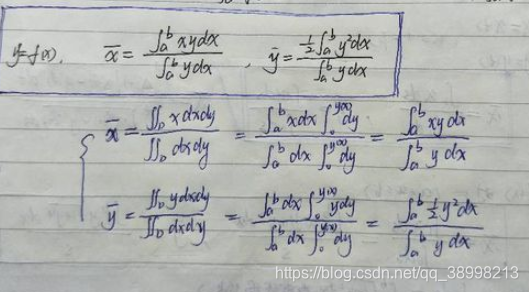 y=f(x), x̄ = ∫ₐᵇ xydx / ∫ₐᵇ ydx , ȳ = ½∫ₐᵇ y²dx / ∫ₐᵇ ydx
x̄ = ∬_D xdxdy / ∬_D dxdy = ∫ₐᵇ xdx ∫₀^y(x) dy / ∫ₐᵇ dx ∫₀^y(x) dy = ∫ₐᵇ xydx / ∫ₐᵇ ydx
ȳ = ∬_D ydxdy / ∬_D dxdy = ∫ₐᵇ dx ∫₀^y(x) ydy / ∫ₐᵇ dx ∫₀^y(x) dy = ∫ₐᵇ ½y²dx / ∫ₐᵇ ydx
https://blog.csdn.net/qq_38998213